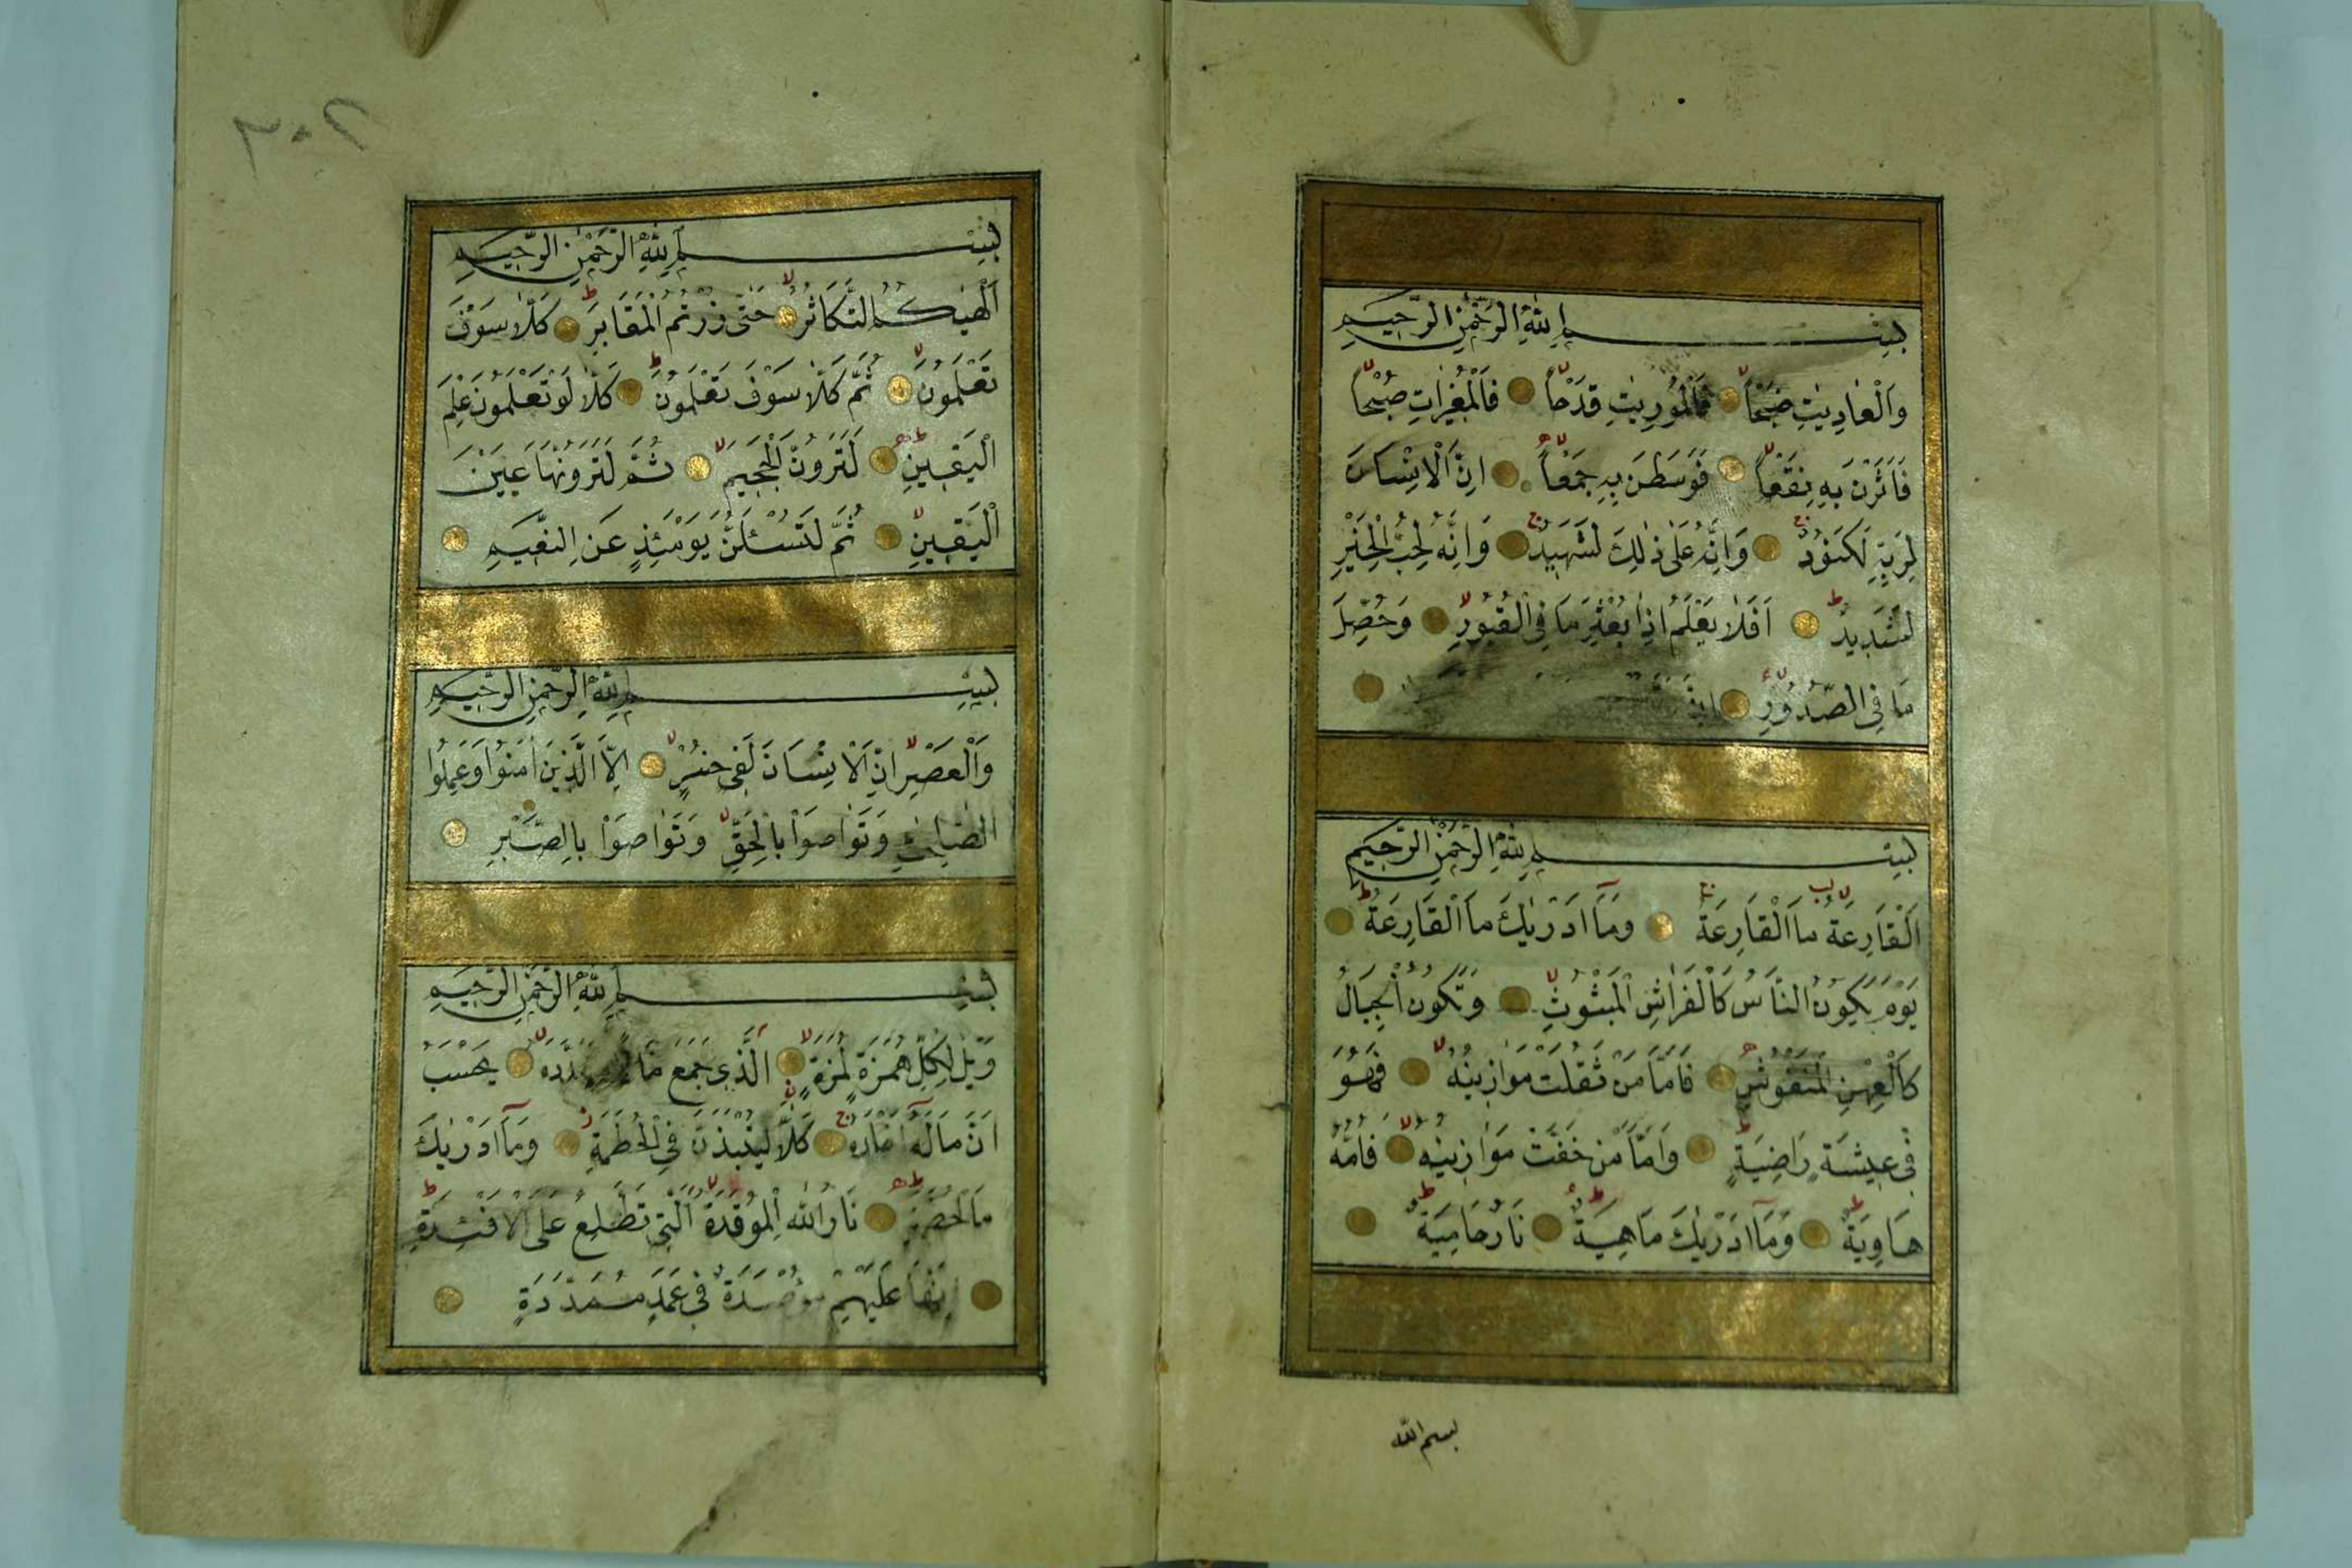 بِسْمِ اللهِ الرَّحْمٰنِ الرَّحِيمِ
وَالْعَادِيَاتِ ضَبْحًا فَالْمُورِيَاتِ قَدْحًا فَالْمُغِيرَاتِ صُبْحًا
فَاَثَرْنَ بِهِ نَقْعًا فَوَسَطْنَ بِهِ جَمْعًا اِنَّ الْاِنْسَانَ
لِرَبِّهِ لَكَنُودٌ وَاِنَّهُ عَلٰى ذٰلِكَ لَشَهِيدٌ وَاِنَّهُ لِحُبِّ الْخَيْرِ
لَشَدِيدٌ اَفَلَا يَعْلَمُ اِذَا بُعْثِرَ مَا فِي الْقُبُورِ وَحُصِّلَ
مَا فِي الصُّدُورِ اِنَّ
بِسْمِ اللهِ الرَّحْمٰنِ الرَّحِيمِ
اَلْقَارِعَةُ مَا الْقَارِعَةُ وَمَآ اَدْرٰيكَ مَا الْقَارِعَةُ
يَوْمَ يَكُونُ النَّاسُ كَالْفَرَاشِ الْمَبْثُوثِ وَتَكُونُ الْجِبَالُ
كَالْعِهْنِ الْمَنْفُوشِ فَاَمَّا مَنْ ثَقُلَتْ مَوَازِينُهُ فَهُوَ
فِي عِيشَةٍ رَاضِيَةٍ وَاَمَّا مَنْ خَفَّتْ مَوَازِينُهُ فَاُمُّهُ
هَاوِيَةٌ وَمَآ اَدْرٰيكَ مَاهِيَةْ نَارٌ حَامِيَةٌ
بسم الله
٣٠٢
بِسْمِ اللهِ الرَّحْمٰنِ الرَّحِيمِ
اَلْهٰيكُمُ التَّكَاثُرُ حَتّٰى زُرْتُمُ الْمَقَابِرَ كَلَّا سَوْفَ
تَعْلَمُونَ ثُمَّ كَلَّا سَوْفَ تَعْلَمُونَ كَلَّا لَوْ تَعْلَمُونَ عِلْمَ
الْيَقِينِ لَتَرَوُنَّ الْجَحِيمَ ثُمَّ لَتَرَوُنَّهَا عَيْنَ
الْيَقِينِ ثُمَّ لَتُسْئَلُنَّ يَوْمَئِذٍ عَنِ النَّعِيمِ
بِسْمِ اللهِ الرَّحْمٰنِ الرَّحِيمِ
وَالْعَصْرِ اِنَّ الْاِنْسَانَ لَفِي خُسْرٍ اِلَّا الَّذِينَ اٰمَنُوا وَعَمِلُوا
الصَّالِحَاتِ وَتَوَاصَوْا بِالْحَقِّ وَتَوَاصَوْا بِالصَّبْرِ
بِسْمِ اللهِ الرَّحْمٰنِ الرَّحِيمِ
وَيْلٌ لِكُلِّ هُمَزَةٍ لُمَزَةٍ الَّذِي جَمَعَ مَالًا وَعَدَّدَهُ يَحْسَبُ
اَنَّ مَالَهُ اَخْلَدَهُ كَلَّا لَيُنْبَذَنَّ فِي الْحُطَمَةِ وَمَآ اَدْرٰيكَ
مَا الْحُطَمَةُ نَارُ اللهِ الْمُوقَدَةُ الَّتِي تَطَّلِعُ عَلَى الْاَفْئِدَةِ
اِنَّهَا عَلَيْهِمْ مُؤْصَدَةٌ فِي عَمَدٍ مُمَدَّدَةٍ